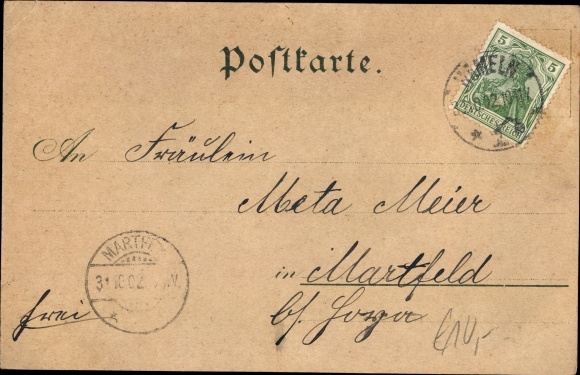 Postkarte.
5 5
HAMELN.
DEUTSCHES REICH
An Fräulein
Meta Meier
in Martfeld
b/. Hoya
frei
MARTF
31 10 02 N.
€10,-